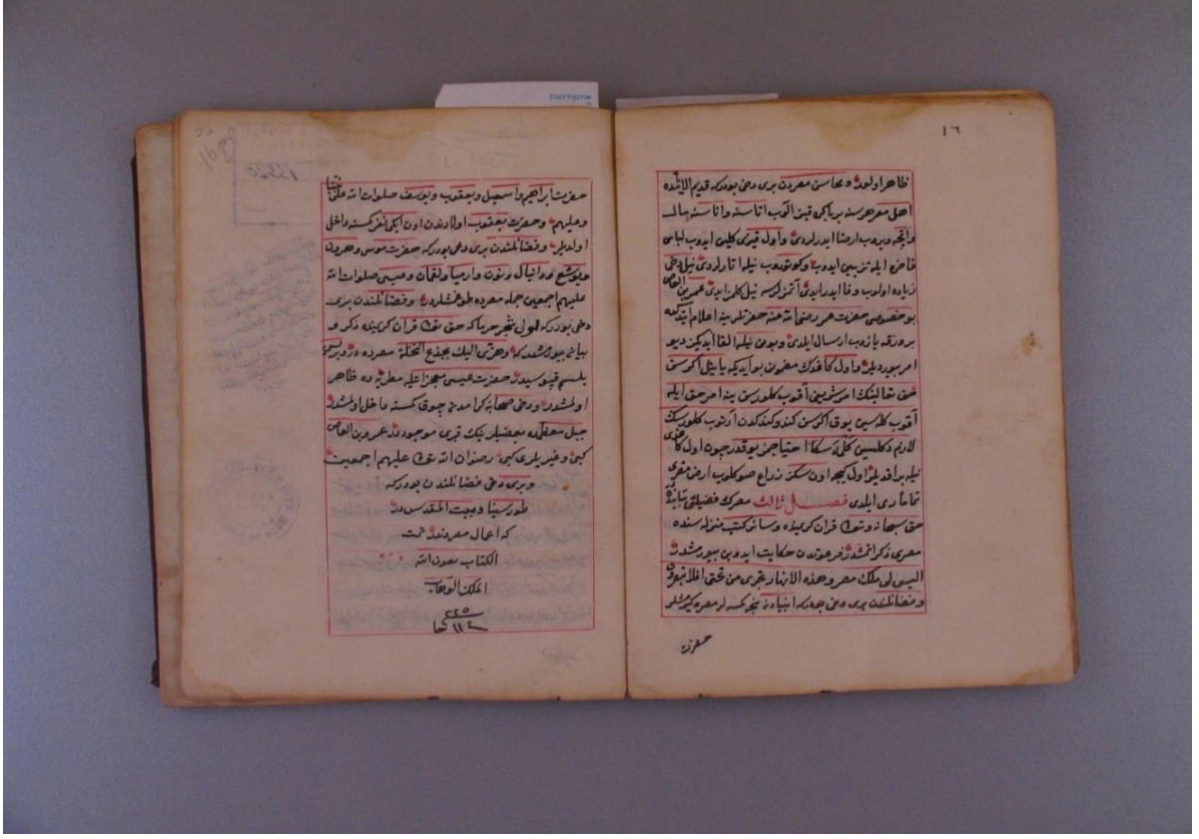 ١٦
ظاهر اولور و محاسن مصردن بری دخی بودرکه قدیم الایامده
اهل مصر هر سنه بر باکر قیز الوب اتاسنه واناسنه مال
واقچه ویروب ارضا ایدرلردی واول قیزی کلین ایدوب لباس
فاخره ایله تزیین ایدوب کوتوروب نیله اتارلردی نیل دخی
زیاده اولوب وفا ایدرایدی آتمزلرسه نیل کلمز ایدی عمر بن العاص
بو خصوصی حضرت عمر رضی الله عنه حضرتلرینه اعلام ایتدکده
بر ورقه یازوب ارسال ایلدی وبونی نیله القا ایدیکز دیو
امر بیوردیلر واول کاغدک مضمونی بو ایدیکه یا نیل اکر سن
حق تعالینک امر شریفی آقوب کلورسن ینه امر حق ایله
آقوب کله سین یوق اکر سن کندو کندکدن آرتوب کلورسک
لازم دکلسین کلمه سکا احتیاجمز یوقدر چون اول کاغدی
نیله براقدیلر اول کیجه اون سکز زراع صو کلوب ارض مصری
تماما روی ایلدی فصل ثالث مصرک فضیلتی بیاننده
حق سبحانه وتعالی قران کریمنده وسائر کتب منزله سنده
مصری ذکر اتمشدر فرعوندن حکایت ایدوب بیورمشدر
الیس لی ملک مصر وهذه الانهار تجری من تحتی افلا تبصرون
وفضائلندن بری دخی بودرکه انبیادن نیجه کسنه لر مصره کیرمشلر
حضرت
15520
حضرت ابراهیم واسمعیل ویعقوب ویوسف صلوات الله علی نبینا
وعلیهم وحضرت یعقوب اولادندن اون ایکی نفر کسنه داخل
اولدیلر وفضائلندن بری دخی بودرکه حضرت موسی وهرون
ویوشع ودانیال وارمیا ولقمان وعیسی صلوات الله
علیهم اجمعین جمله مصرده طوغمشلردر وفضائلندن بری
دخی بودرکه اول شجر خرما که حق تعالی قران کریمنده ذکر و
بیان بیورمشدرکه وهزی الیک بجذع النخلة مصرده در وبری
بلسم قیوسیدر حضرت عیسی معجزاتیله مطریه ده ظاهر
اولمشدر ودخی صحابه کرامدن چوق کسنه داخل اولمشدر
جبل مقطمده بعضیلرینک قبری موجوددر عمرو بن العاص
کبی وغیریلری کبی رضوان الله تعالی علیهم اجمعین
وبری دخی فضائلندن بودرکه
طور سینا وبیت المقدس در
که اعمال مصردندر تمت
الکتاب بعون الله
الملک الوهاب